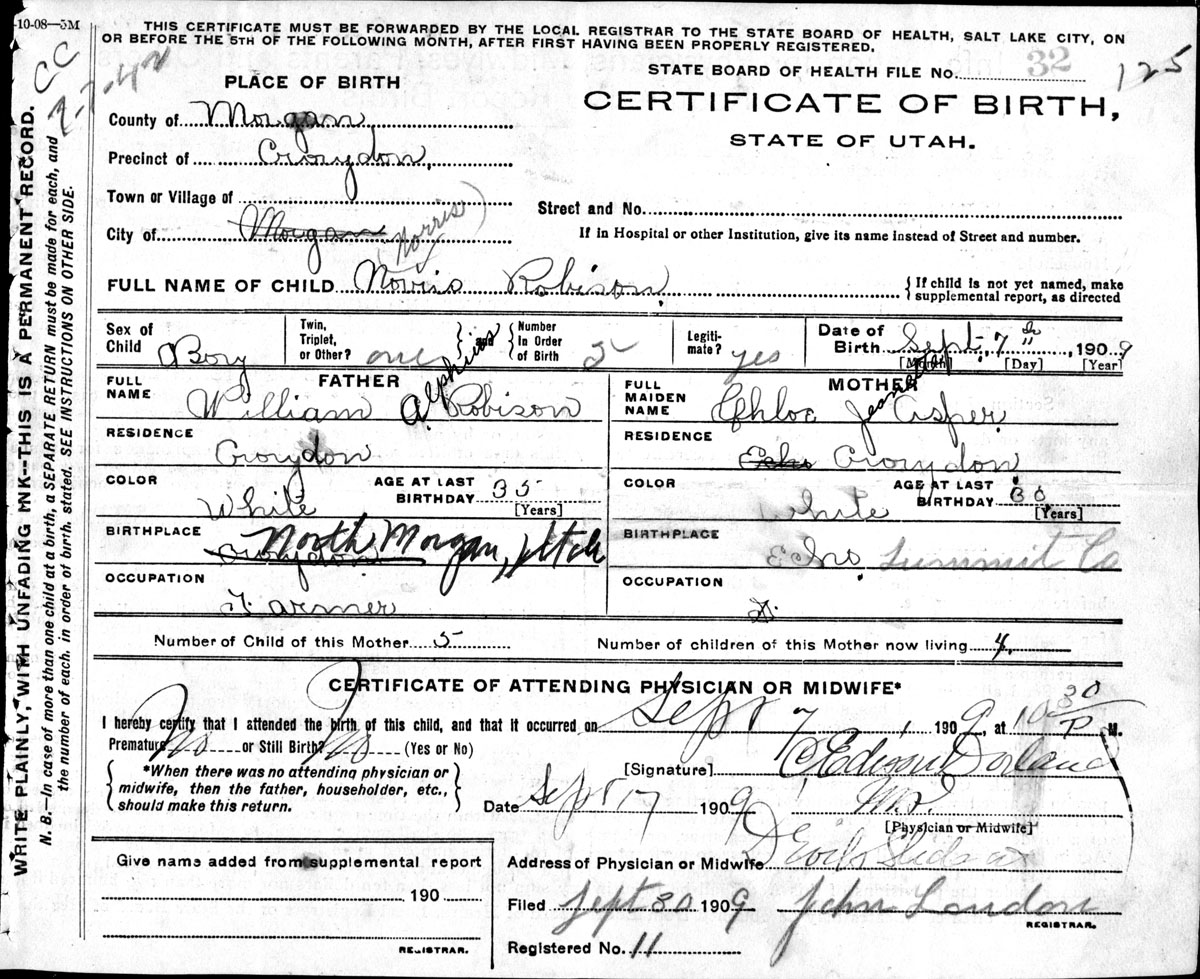 -10-08—5M
THIS CERTIFICATE MUST BE FORWARDED BY THE LOCAL REGISTRAR TO THE STATE BOARD OF HEALTH, SALT LAKE CITY, ON
OR BEFORE THE 5TH OF THE FOLLOWING MONTH, AFTER FIRST HAVING BEEN PROPERLY REGISTERED.
CC
WRITE PLAINLY, WITH UNFADING INK--THIS IS A PERMANENT RECORD.
N. B.—In case of more than one child at a birth, a SEPARATE RETURN must be made for each, and
the number of each, in order of birth, stated. SEE INSTRUCTIONS ON OTHER SIDE.
STATE BOARD OF HEALTH FILE No. 32
125
CERTIFICATE OF BIRTH,
STATE OF UTAH.
PLACE OF BIRTH
County of Morgan
Precinct of Croydon,
Town or Village of
City of Morgan
(Norris)
Street and No.
If in Hospital or other Institution, give its name instead of Street and number.
FULL NAME OF CHILD Norris Robison
If child is not yet named, make
supplemental report, as directed
Sex of Child Boy
Twin, Triplet, or Other? one
and
Number In Order of Birth 5
Legiti-mate? yes
Date of Birth Sept. 7th, 1909
[Month] [Day] [Year]
FATHER
FULL NAME William A. Alphius Robison
RESIDENCE Croydon
COLOR White
AGE AT LAST BIRTHDAY 35
[Years]
BIRTHPLACE Croydon North Morgan, Utah
OCCUPATION Farmer
MOTHER
FULL MAIDEN NAME Chloe Jeanette Asper
RESIDENCE Echo Croydon
COLOR White
AGE AT LAST BIRTHDAY 30
[Years]
BIRTHPLACE Echo, Summit Co
OCCUPATION
Number of Child of this Mother 5
Number of children of this Mother now living 4.
CERTIFICATE OF ATTENDING PHYSICIAN OR MIDWIFE*
I hereby certify that I attended the birth of this child, and that it occurred on Sept 7, 1909, at 10 30 P M.
Premature No or Still Birth? No (Yes or No)
*When there was no attending physician or
midwife, then the father, householder, etc.,
should make this return.
[Signature] C Edison Dorland
Date Sept 17 1909
M.D.
[Physician or Midwife]
Address of Physician or Midwife Devils Slide
Give name added from supplemental report
190
REGISTRAR.
Filed Sept 30 1909 John London
REGISTRAR.
Registered No. 11